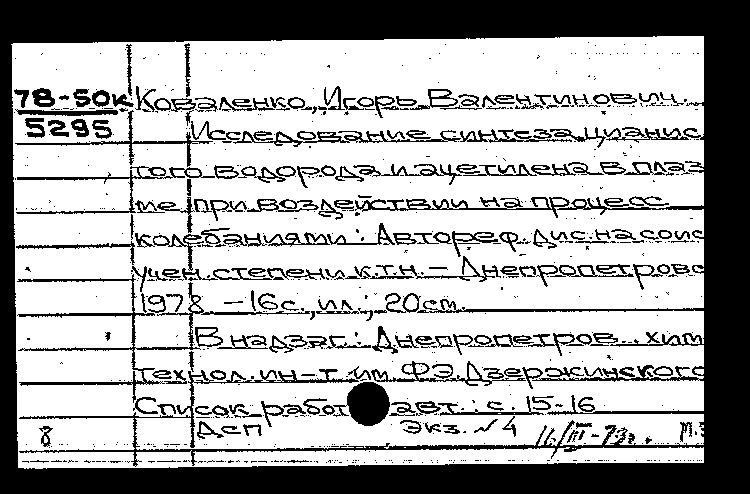 78-50к Коваленко, Игорь Валентинович.
5295 Исследование синтеза цианис
того водорода и ацетилена в плаз
ме при воздействии на процесс
колебаниями : Автореф. дис. на соис
учен. степени к.т.н. – Днепропетровс
1978 – 16 с., ил.; 20 см.
В надзаг.: Днепропетров. хим
технол. ин-т им. Ф.Э. Дзержинского
Список работ авт.: с. 15-16
8 Дсп Экз. № 4 16/III-73г. М.З